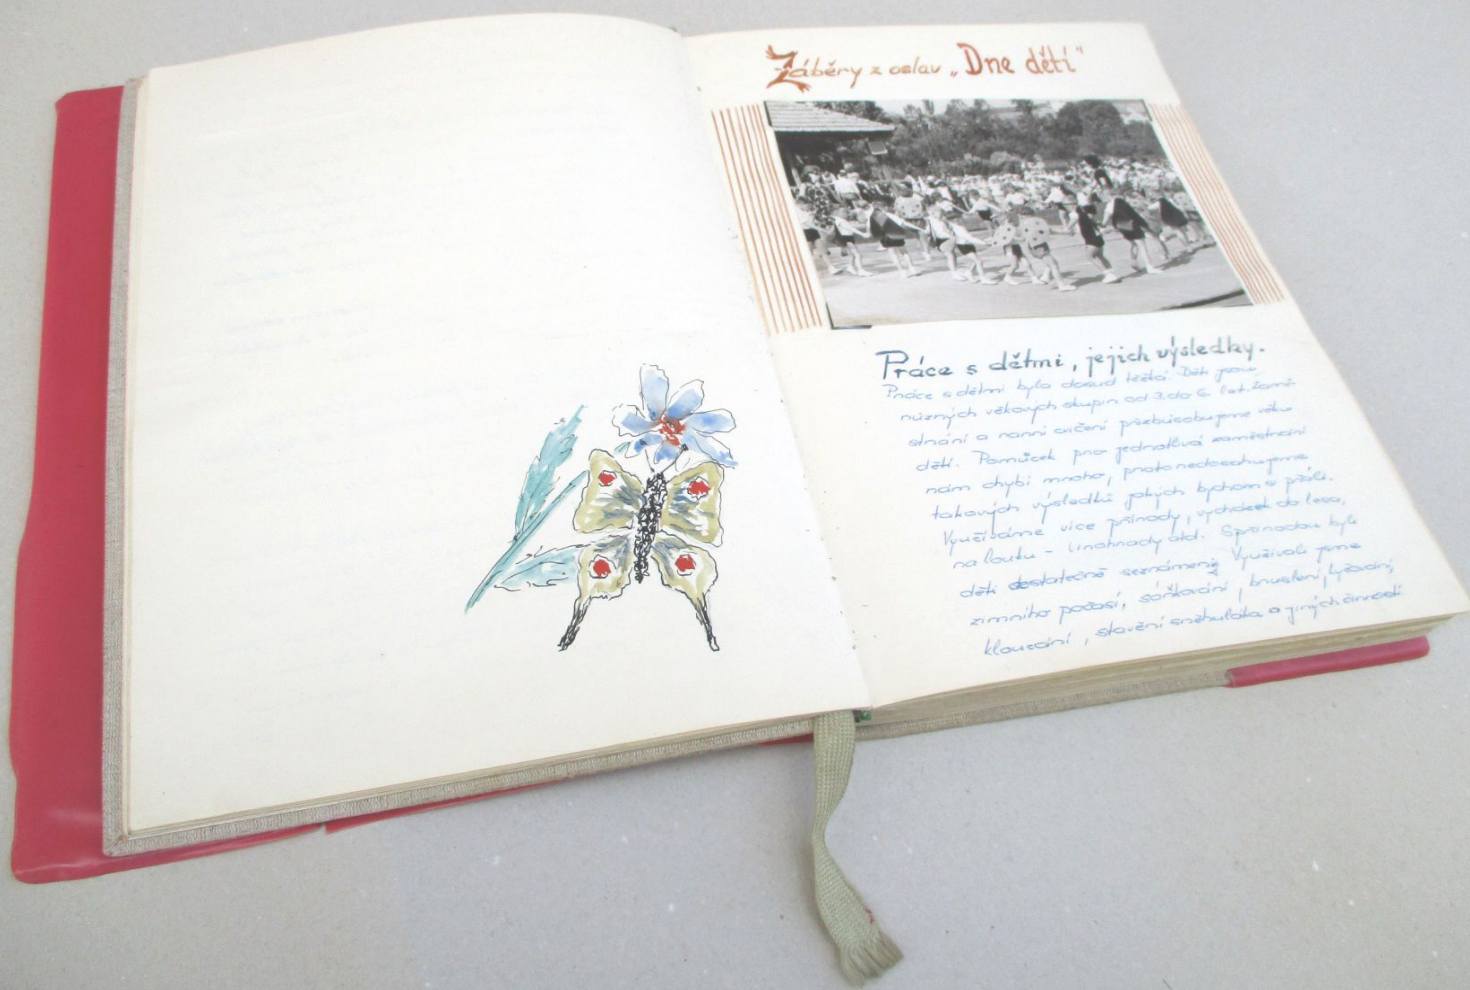 Záběry z oslav „Dne dětí"
Práce s dětmi, jejich výsledky.
Práce s dětmi byla dosud těžká. Děti jsou
různých věkových skupin od 3 do 6 let. Zamě-
stnání a ranní cvičení přizpůsobujeme věku
dětí. Pomůcek pro jednotlivá zaměstnání
nám chybí mnoho, proto nedosahujeme
takových výsledků jakých bychom si přáli.
Využíváme více přírody, vycházek do lesa,
na louku - atd. S přírodou byly
děti dostatečně seznámeny. Využívali jsme
zimního počasí, sáňkování, bruslení, lyžování,
klouzání, stavění sněhuláka a jiných činností